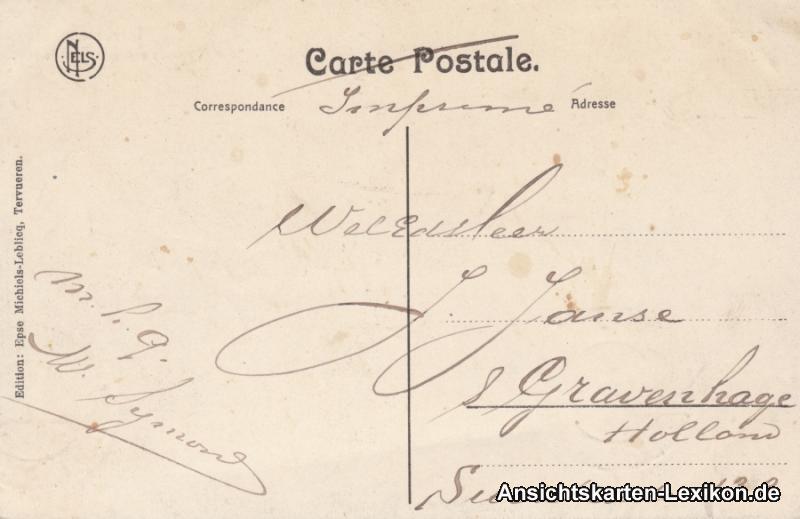 NELS
Carte Postale.
Correspondance Imprimé Adresse
WelEdHeer
J. Janse
s Gravenhage
Holland
Edition: Epse Michiels-Leblicq, Tervueren.
m. l. g.
W. Symons
Ansichtskarten-Lexikon.de